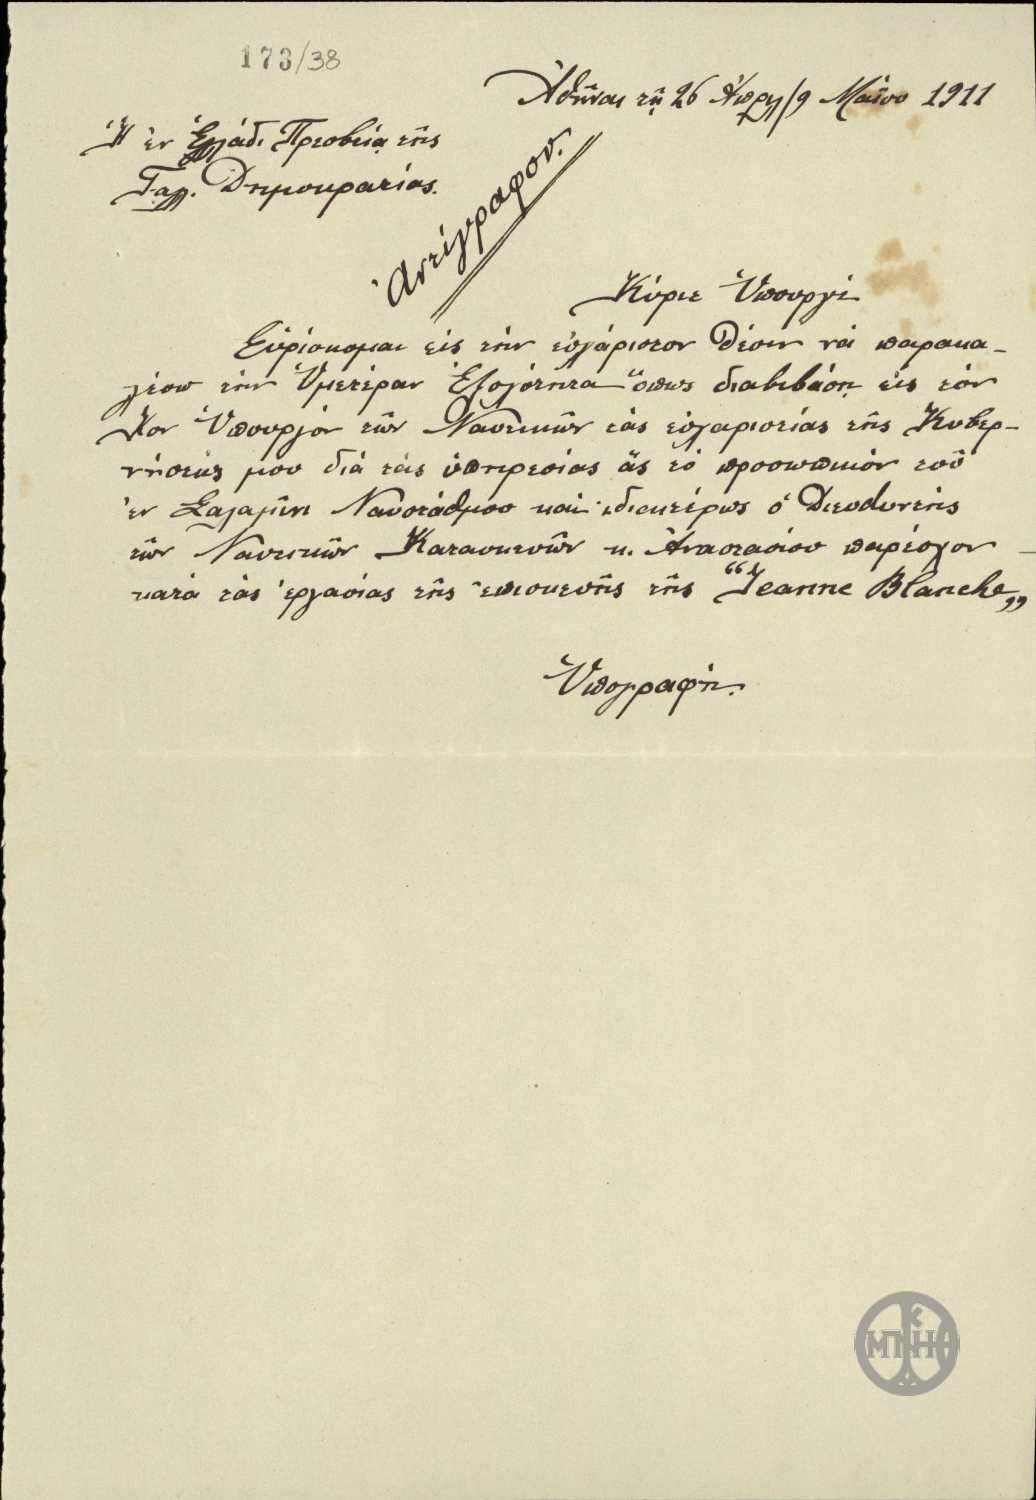 173/38
Ἀθῆναι τῇ 26 Ἀπρλ/9 Μαΐου 1911
Ἡ ἐν Ἑλλάδι Πρεσβεία τῆς
Γαλλ. Δημοκρατίας.
Ἀντίγραφον.
Κύριε Ὑπουργέ
Εὑρίσκομαι εἰς τὴν εὐχάριστον θέσιν νὰ παρακα-
λέσω τὴν Ὑμετέραν Ἐξοχότητα ὅπως διαβιβάσῃ εἰς τὸν
Κον Ὑπουργὸν τῶν Ναυτικῶν τὰς εὐχαριστίας τῆς Κυβερ-
νήσεώς μου διὰ τὰς ὑπηρεσίας ἃς τὸ προσωπικὸν τοῦ
ἐν Σαλαμῖνι Ναυστάθμου καὶ ἰδιαιτέρως ὁ Διευθυντὴς
τῶν Ναυτικῶν Κατασκευῶν κ. Ἀναστασίου παρέσχον
κατὰ τὰς ἐργασίας τῆς ἐπισκευῆς τῆς “Jeanne Blanche„
Ὑπογραφή.
ΜΠΚΗ